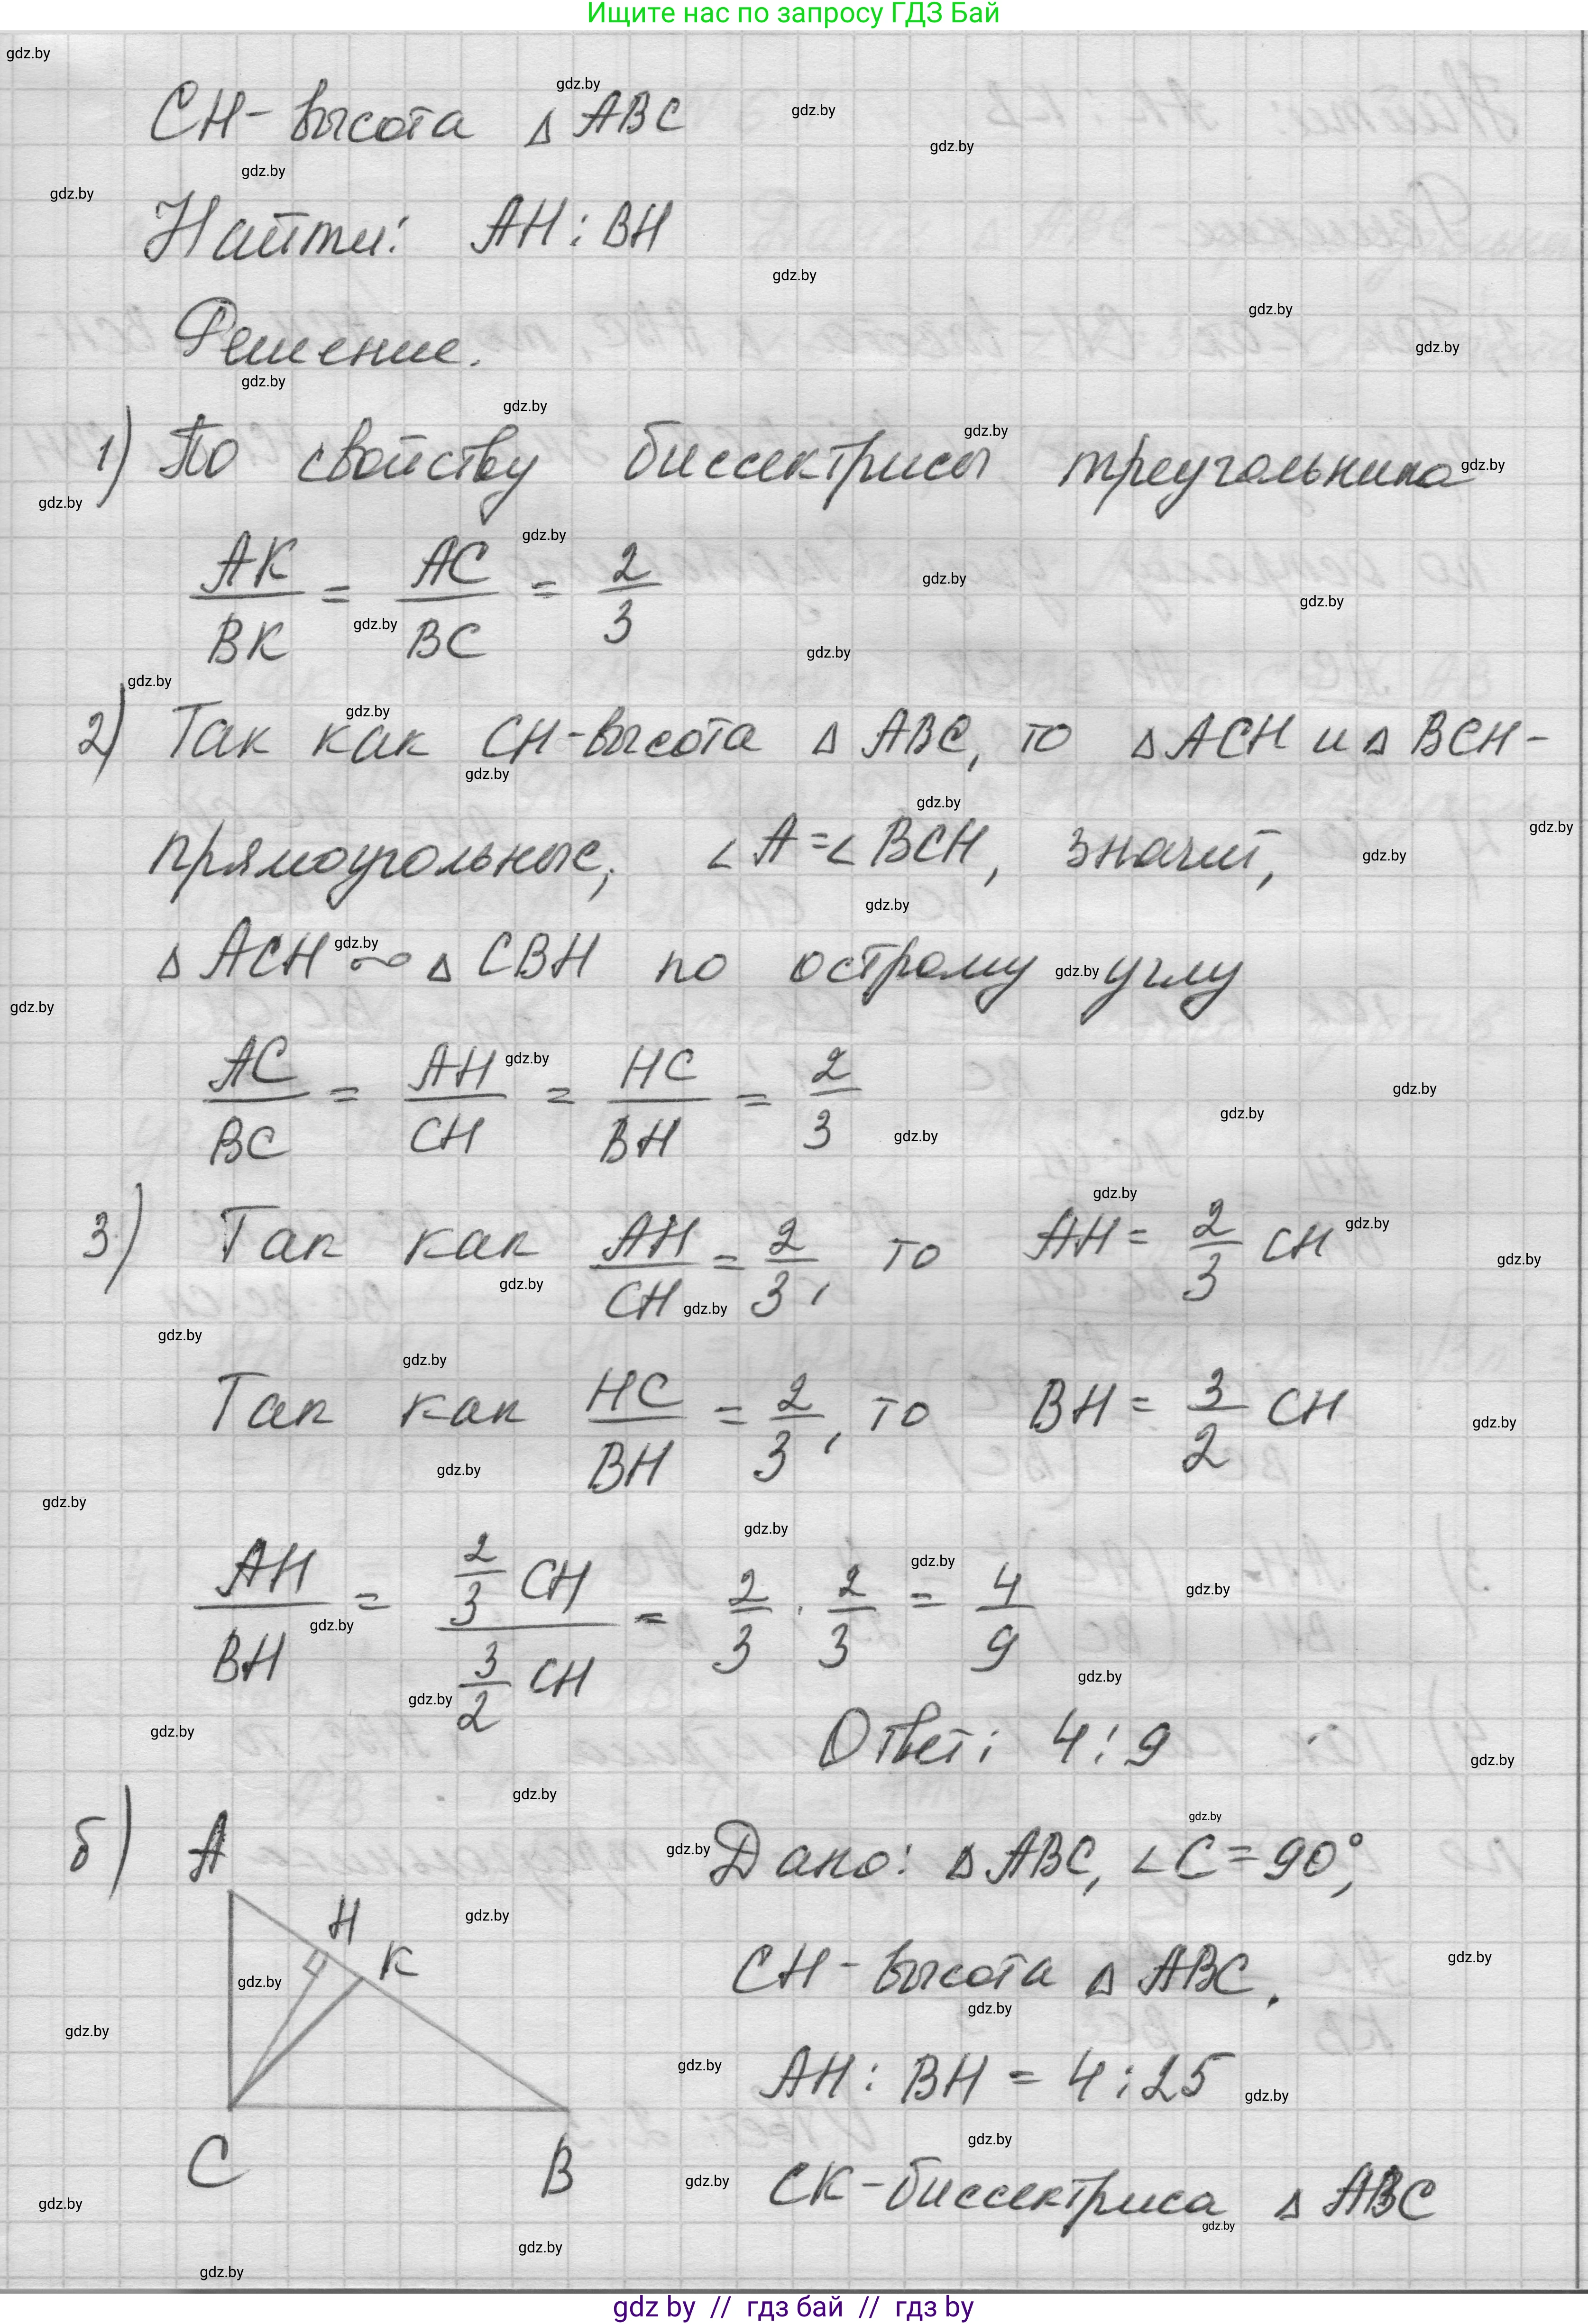 Ищите нас по запросу ГДЗ Бай
CH - высота △ ABC
Найти: AH : BH
Решение.
1) По свойству биссектрисы треугольника
AK/BK = AC/BC = 2/3
2) Так как CH - высота △ ABC, то △ ACH и △ BCH -
прямоугольные, ∠A = ∠BCH, значит,
△ ACH ∾ △ CBH по острому углу
AC/BC = AH/CH = HC/BH = 2/3
3) Так как AH/CH = 2/3, то AH = 2/3 CH
Так как HC/BH = 2/3, то BH = 3/2 CH
AH/BH = (2/3 CH)/(3/2 CH) = 2/3 · 2/3 = 4/9
Ответ: 4 : 9
б) A
H
K
C
B
Дано: △ ABC, ∠C = 90°,
CH - высота △ ABC.
AH : BH = 4 : 25
CK - биссектриса △ ABC
gdz by // гдз бай // гдз by